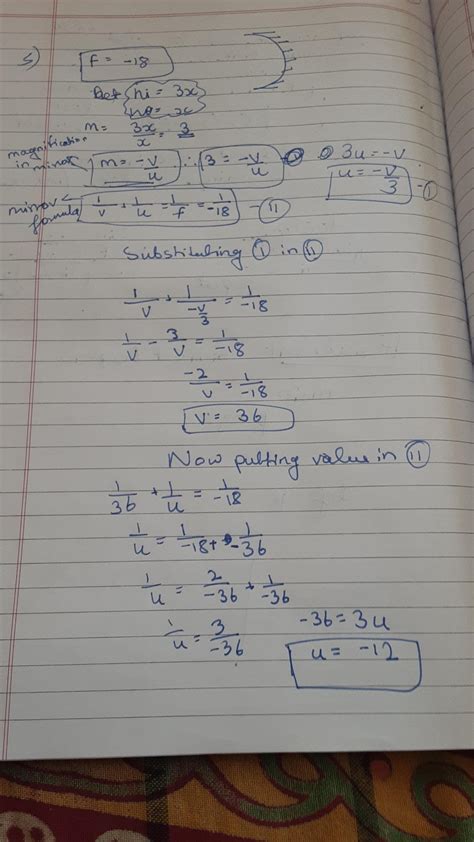 5)
f = -18
Let hi = 3x
ho = x
m = 3x/x = 3
magnification in mirror m = -v/u ∴ 3 = -v/u 3u = -v
u = -v/3 - ①
mirror formula 1/v + 1/u = 1/f = 1/-18 - ⑪
Substituting ① in ⑪
1/v + 1/(-v/3) = 1/-18
1/v - 3/v = 1/-18
-2/v = 1/-18
v = 36
Now putting value in ⑪
1/36 + 1/u = 1/-18
1/u = 1/-18 + 1/-36
1/u = 2/-36 + 1/-36
1/u = 3/-36 -36 = 3u
u = -12